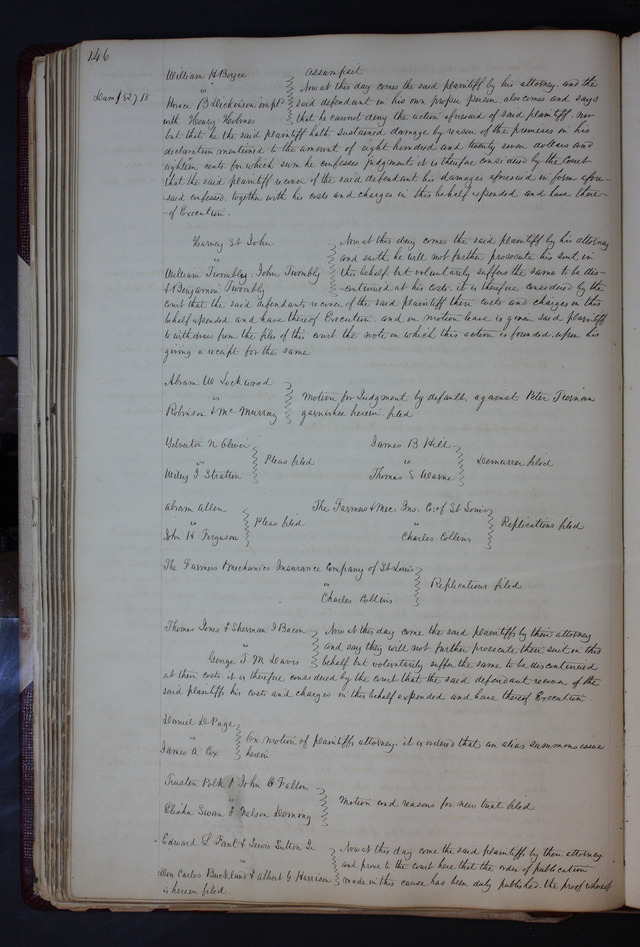 146
William H Boyce
"
Horace B Dickinson impld
with Henry Holmes
Dam 1 827.18
Assumpsit
Now at this day comes the said plaintiff by his attorney. and the
said defendant in his own proper person also comes and says
that he cannot deny the action aforesaid of said plaintiff. nor
but that he the said plaintiff hath sustained damage by reason of the premises in his
declaration mentioned to the amount of eight hundred and twenty seven dollars and
eighteen cents. for which sum he confesses judgment. it is therefore considered by the Court
that the said plaintiff recover of the said defendant his damages aforesaid in form afore-
said confessed, together with his costs and charges in this behalf expended and have there-
of Execution.
Harvey St John
"
William Twombley, John Twombly
& Benjamin Twombly
Now at this day comes the said plaintiff by his attorney
and saith he will not further prosecute his suit in
this behalf but voluntarily suffers the same to be dis-
continued at his costs. it is therefore considered by the
court that the said defendants recover of the said plaintiff their costs and charges in this
behalf expended and have thereof Execution. and on motion leave is given said plaintiff
to withdraw from the files of this court the note on which this action is founded, upon his
giving a receipt for the same
Abram W Lockwood
"
Robinson & McMurray
Motion for Judgment by default against Peter
garnishee herein filed
Yelverton N Oliver
"
Wiley J Stratton
Pleas filed
James B Hill
"
Thomas S Warne
Demurrer filed
Abram Allen
"
John H Ferguson
Pleas filed
The Farmers & Mec. Ins. Co of St Louis
"
Charles Collins
Replications filed
The Farmers & Mechanics Insurance Company of St Louis
"
Charles Collins
Replications filed
Thomas Jones & Sherman J Bacon
"
George T. M. Davis
Now at this day come the said plaintiffs by their attorney
and say they will not further prosecute their suit in this
behalf but voluntarily suffer the same to be discontinued
at their costs. it is therefore considered by the court that the said defendant recover of the
said plaintiffs his costs and charges in this behalf expended and have thereof Execution.
Daniel D Page
"
James A Cox
On motion of plaintiffs attorney. it is ordered that an alias summons issue
herein
Trusten Polk & John C Fallon
"
Elisha Swan & Nelson
Motion and reasons for new trial filed
Edward L Fant & Lewis Sutton Jr
"
Don Carlos Buckland & Albert G Harrison
Now at this day come the said plaintiffs by their attorney
and prove to the court here that the order of publication
made in this cause has been duly published. the proof whereof
is herein filed.